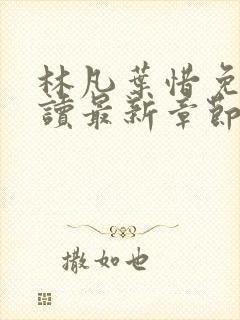 林凡葉惜免
讀最新章節
撒如也